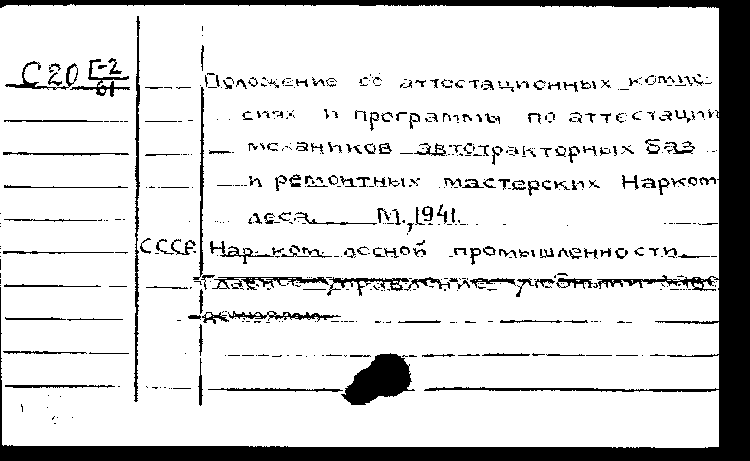 С20 Г-2/61
Положение об аттестационных комис-
сиях и программы по аттестации
механиков автотракторных баз
и ремонтных мастерских Нарком-
леса. М., 1941.
СССР. Нар. ком. лесной промышленности.
Главное управление учебными заве
дениями